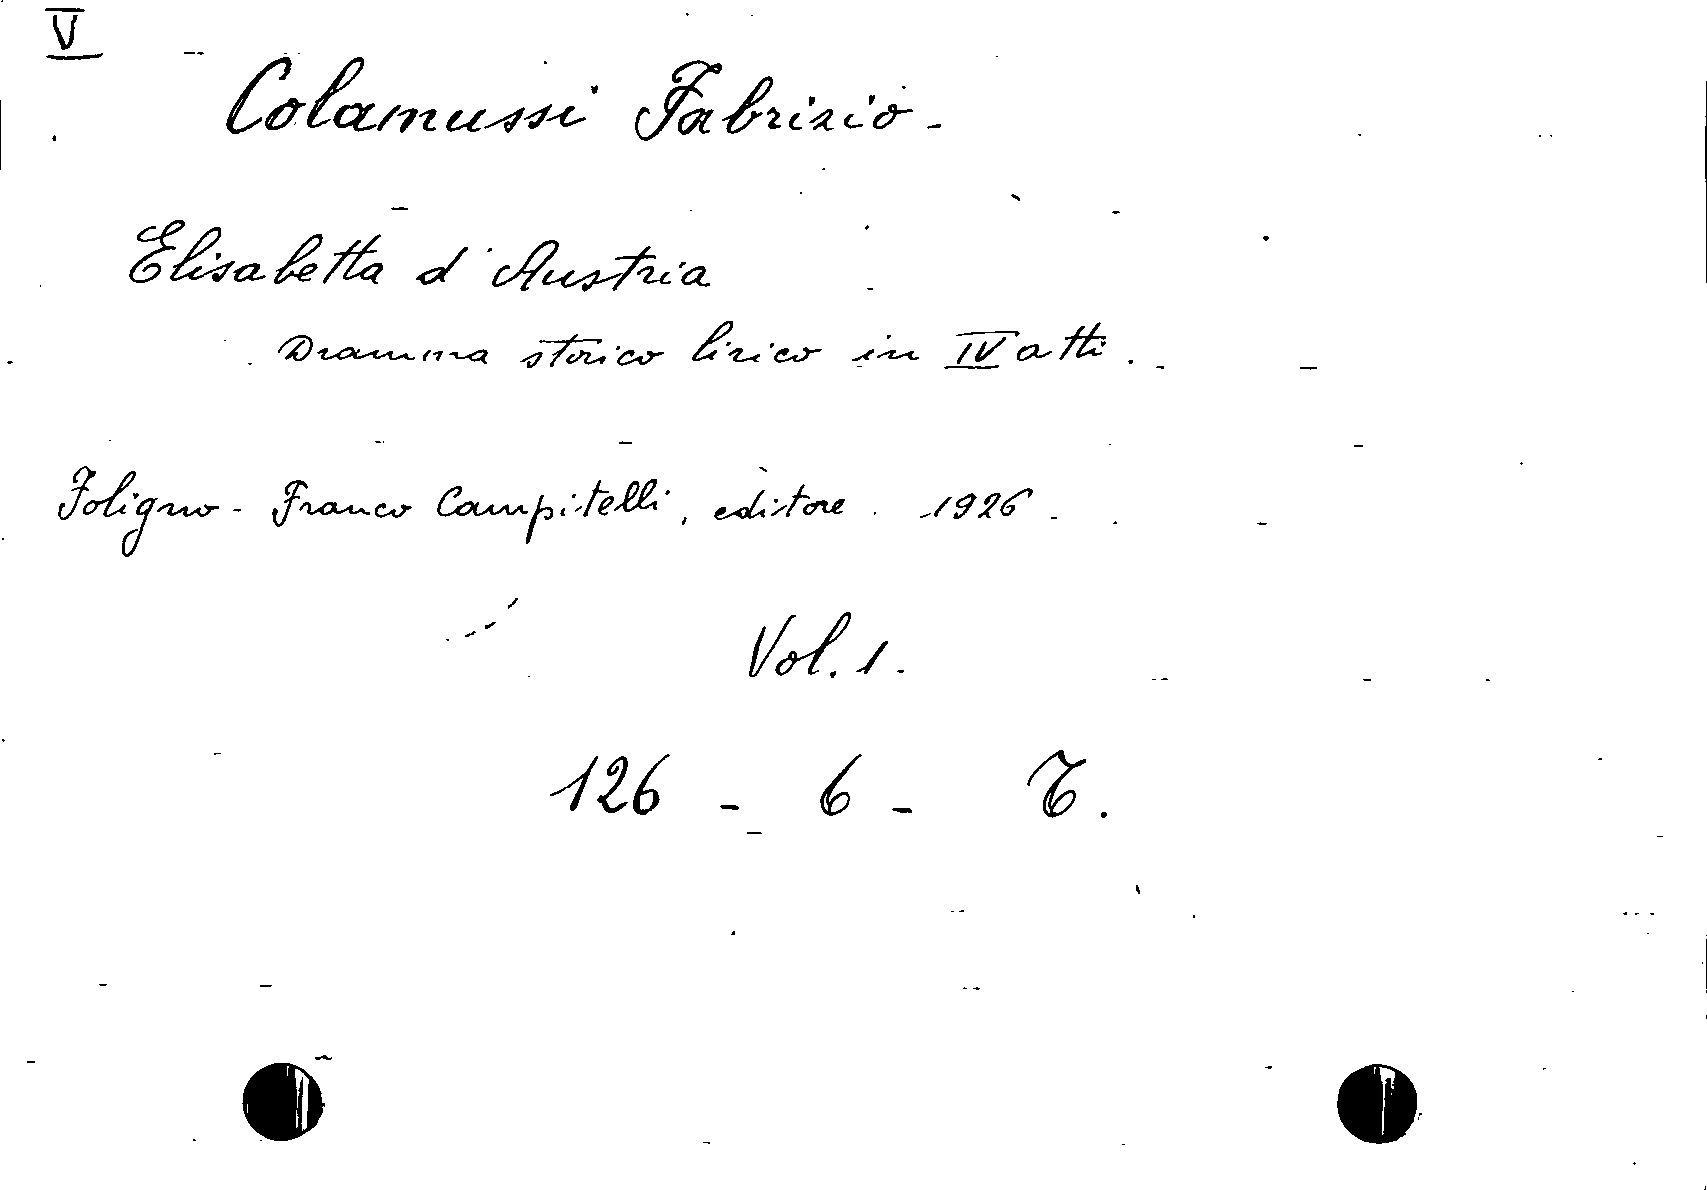 V
Colamussi Fabrizio -
Elisabetta d'Austria
Dramma storico lirico in IV atti.
Foligno - Franco Campitelli, editore. 1926.
Vol. 1.
126 - 6 - 7.